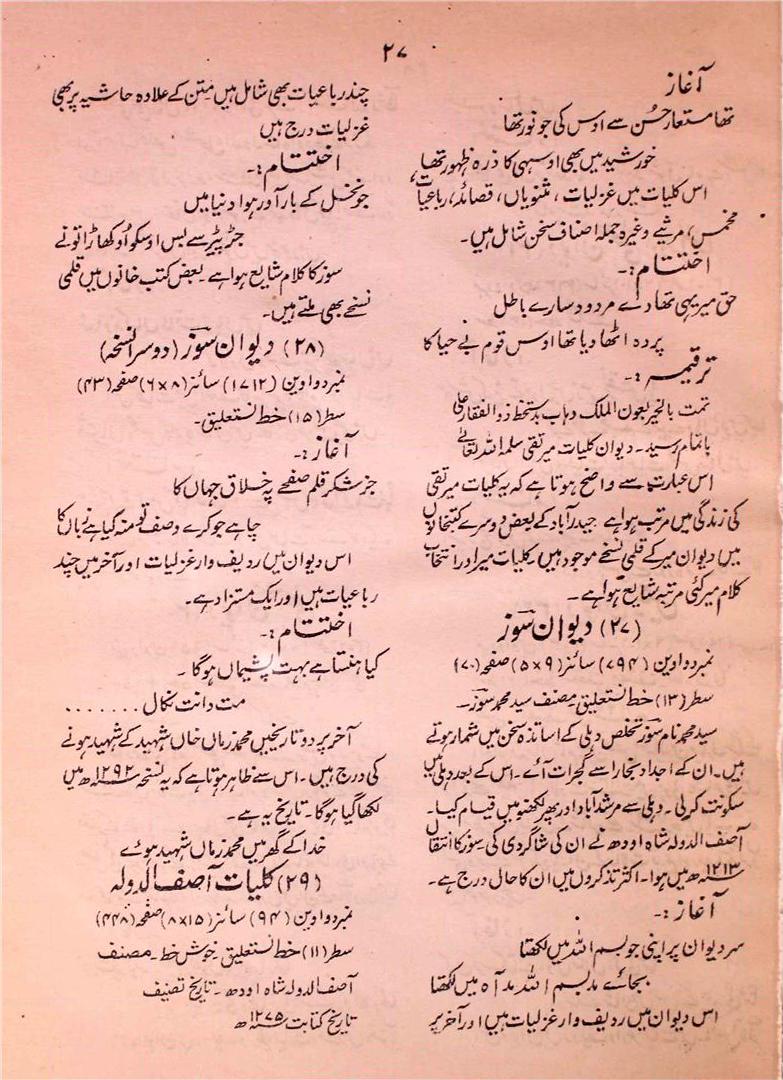 ۲۷
آغاز
تھا مستعار حسن سے اوس کی جو نور تھا
خورشید میں بھی اوسہی کا ذرہ ظہور تھا
اس کلیات میں غزلیات ، مثنویاں ، قصائد، رباعیات،
مخمس، مرثیے وغیرہ جملہ اصناف سخن شامل ہیں۔
اختتام :۔
حق میر یہی تھا دے مردود سارے باطل
پردہ اٹھا دیا تھا اوس قوم بے حیا کا
ترقیمہ :۔
تمت بالخیر بعون الملک وہاب بدستخط ذوالفقار علی
باتمام رسید۔ دیوان کلیات میر تقی سلمہ اللہ تعالیٰ
اس عبارت سے واضح ہوتا ہے کہ یہ کلیات میر تقی
کی زندگی میں مرتب ہوا ہے حیدرآباد کے بعض دوسرے کتبخانوں
میں دیوان میر کے قلمی نسخے موجود ہیں۔ کلیات میر اور انتخاب
کلام میر کئی مرتبہ شایع ہوا ہے۔
(۲۷) دیوان سوز
نمبر دواوین (۷۹۴) سائز (۹×۵) صفحہ (۷۰)
سطر (۱۳) خط نستعلیق مصنف سید محمد سوز۔
سید محمد نام سوز تخلص دہلی کے اساتذہ سخن میں شمار ہوتے
ہیں۔ ان کے اجداد بخارا سے گجرات آئے۔ اس کے بعد دہلی میں
سکونت کرلی۔ دہلی سے مرشدآباد اور پھر لکھنو میں قیام کیا۔
آصف الدولہ شاہ اودھ نے ان کی شاگردی کی سوز کا انتقال
۱۲۱۳ھ میں ہوا۔ اکثر تذکروں میں ان کا حال درج ہے۔
آغاز :۔
سر دیوان پر اپنی جو بسم اللہ میں لکھتا
بجائے مد بسم اللہ مد آہ میں لکھتا
اس دیوان میں ردیف وار غزلیات ہیں اور آخر پر
چند رباعیات بھی شامل ہیں متن کے علاوہ حاشیہ پر بھی
غزلیات درج ہیں
اختتام :۔
جو نخل کے بارآور ہوا دنیا میں
جڑ پیڑ سے بس اوسکو اُوکھاڑا تو نے
سوز کا کلام شایع ہوا ہے۔ بعض کتب خانوں میں قلمی
نسخے بھی ملتے ہیں۔
(۲۸) دیوان سوز (دوسرا نسخہ)
نمبر دواوین (۱۷۱۲) سائز (۸×۶) صفحہ (۴۳)
سطر (۱۵) خط نستعلیق۔
آغاز :۔
جز شکر قلم صفحے پہ خلاق جہاں کا
چاہے جو کرے وصف تو منہ کیا ہے زباں کا
اس دیوان میں ردیف وار غزلیات اور آخر میں چند
رباعیات ہیں اور ایک مستزاد ہے۔
اختتام :۔
کیا ہنستا ہے بہت پشیماں ہوگا ۔
مت دانت نکال .......
آخر پر دو تاریخیں محمد زماں خاں شہید کے شہید ہونے
کی درج ہیں۔ اس سے ظاہر ہوتا ہے کہ یہ نسخہ ۱۲۹۲ھ میں
لکھا گیا ہوگا۔ تاریخ یہ ہے۔
خدا کے گھر میں محمد زماں شہید ہوئے
(۲۹) کلیات آصف الدولہ
نمبر دواوین (۹۴) سائز (۱۵×۸) صفحہ (۴۴۸)
سطر (۱۱) خط نستعلیق خوش خط۔ مصنف
آصف الدولہ شاہ اودھ۔ تاریخ تصنیف
تاریخ کتابت ۱۲۷۵ھ